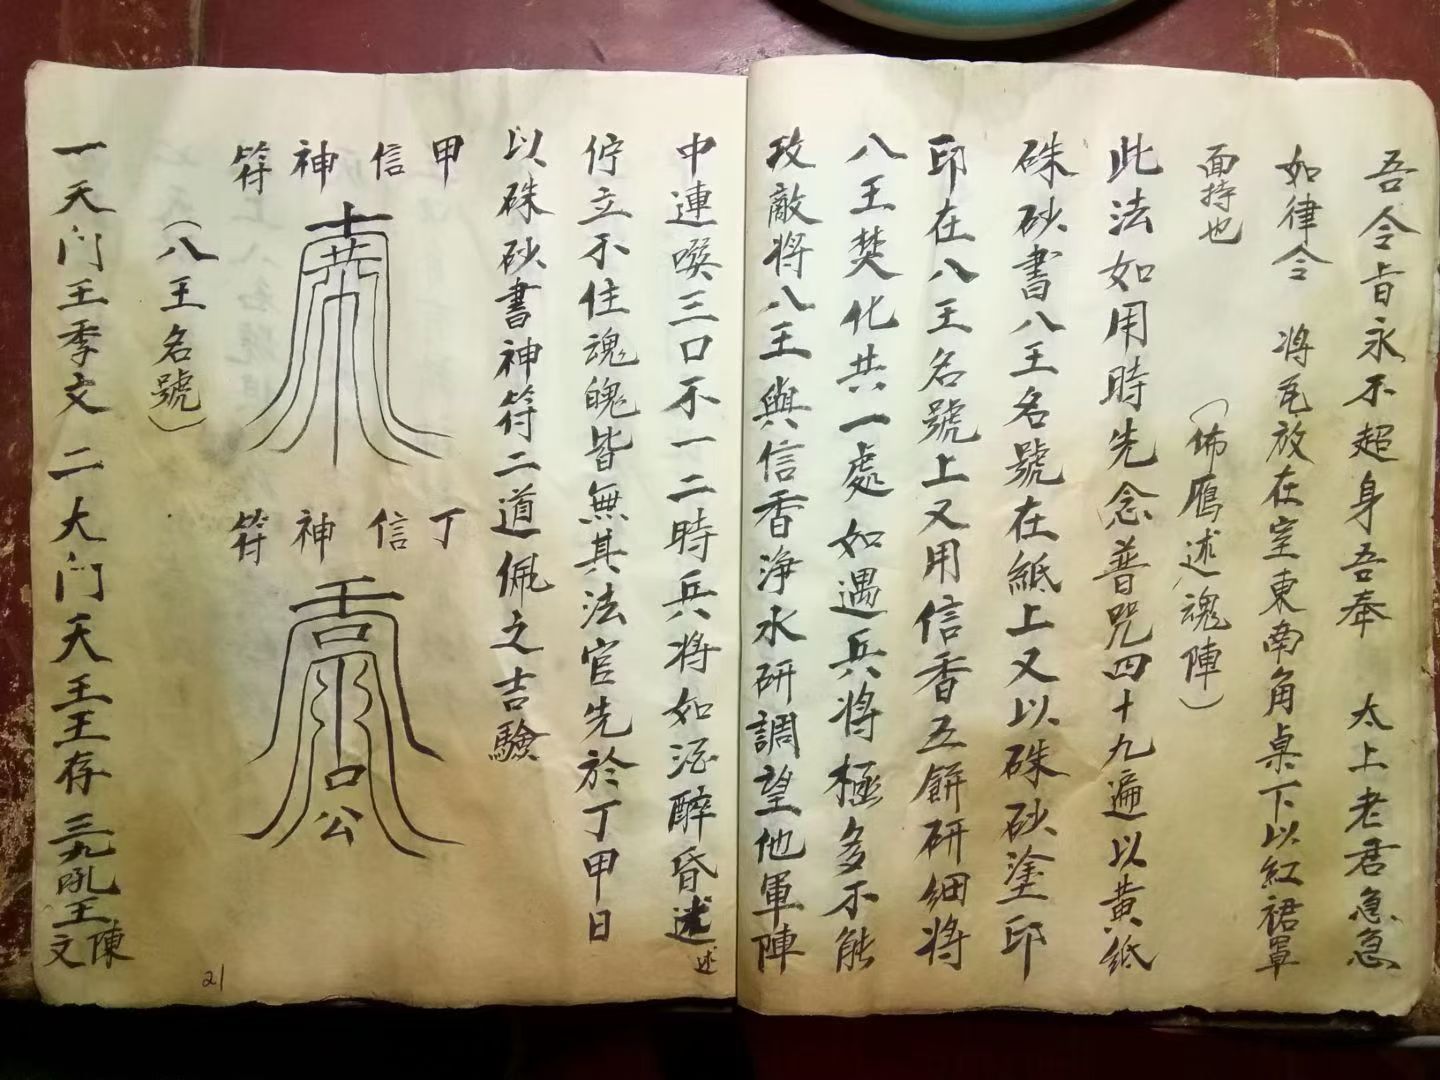 吾令旨永不超身吾奉　太上老君急急
如律令　將瓦放在室東南角桌下以紅裙罩
面持也
（佈鴈述魂陣）
此法如用時先念普咒四十九遍以黄紙
硃砂書八王名號在紙上又以硃砂塗印
印在八王名號上又用信香五餅研細將
八王焚化共一處如遇兵將極多不能
攻敵將八王與信香淨水研調望他軍陣
中連噀三口不一二時兵將如酒醉昏述
述
佇立不住魂魄皆無其法官先於丁甲日
以硃砂書神符二道佩之吉驗
甲信神符
丁信神符
公
（八王名號）
一天门王季文　二大门天王王存　三九吼王陳文
21